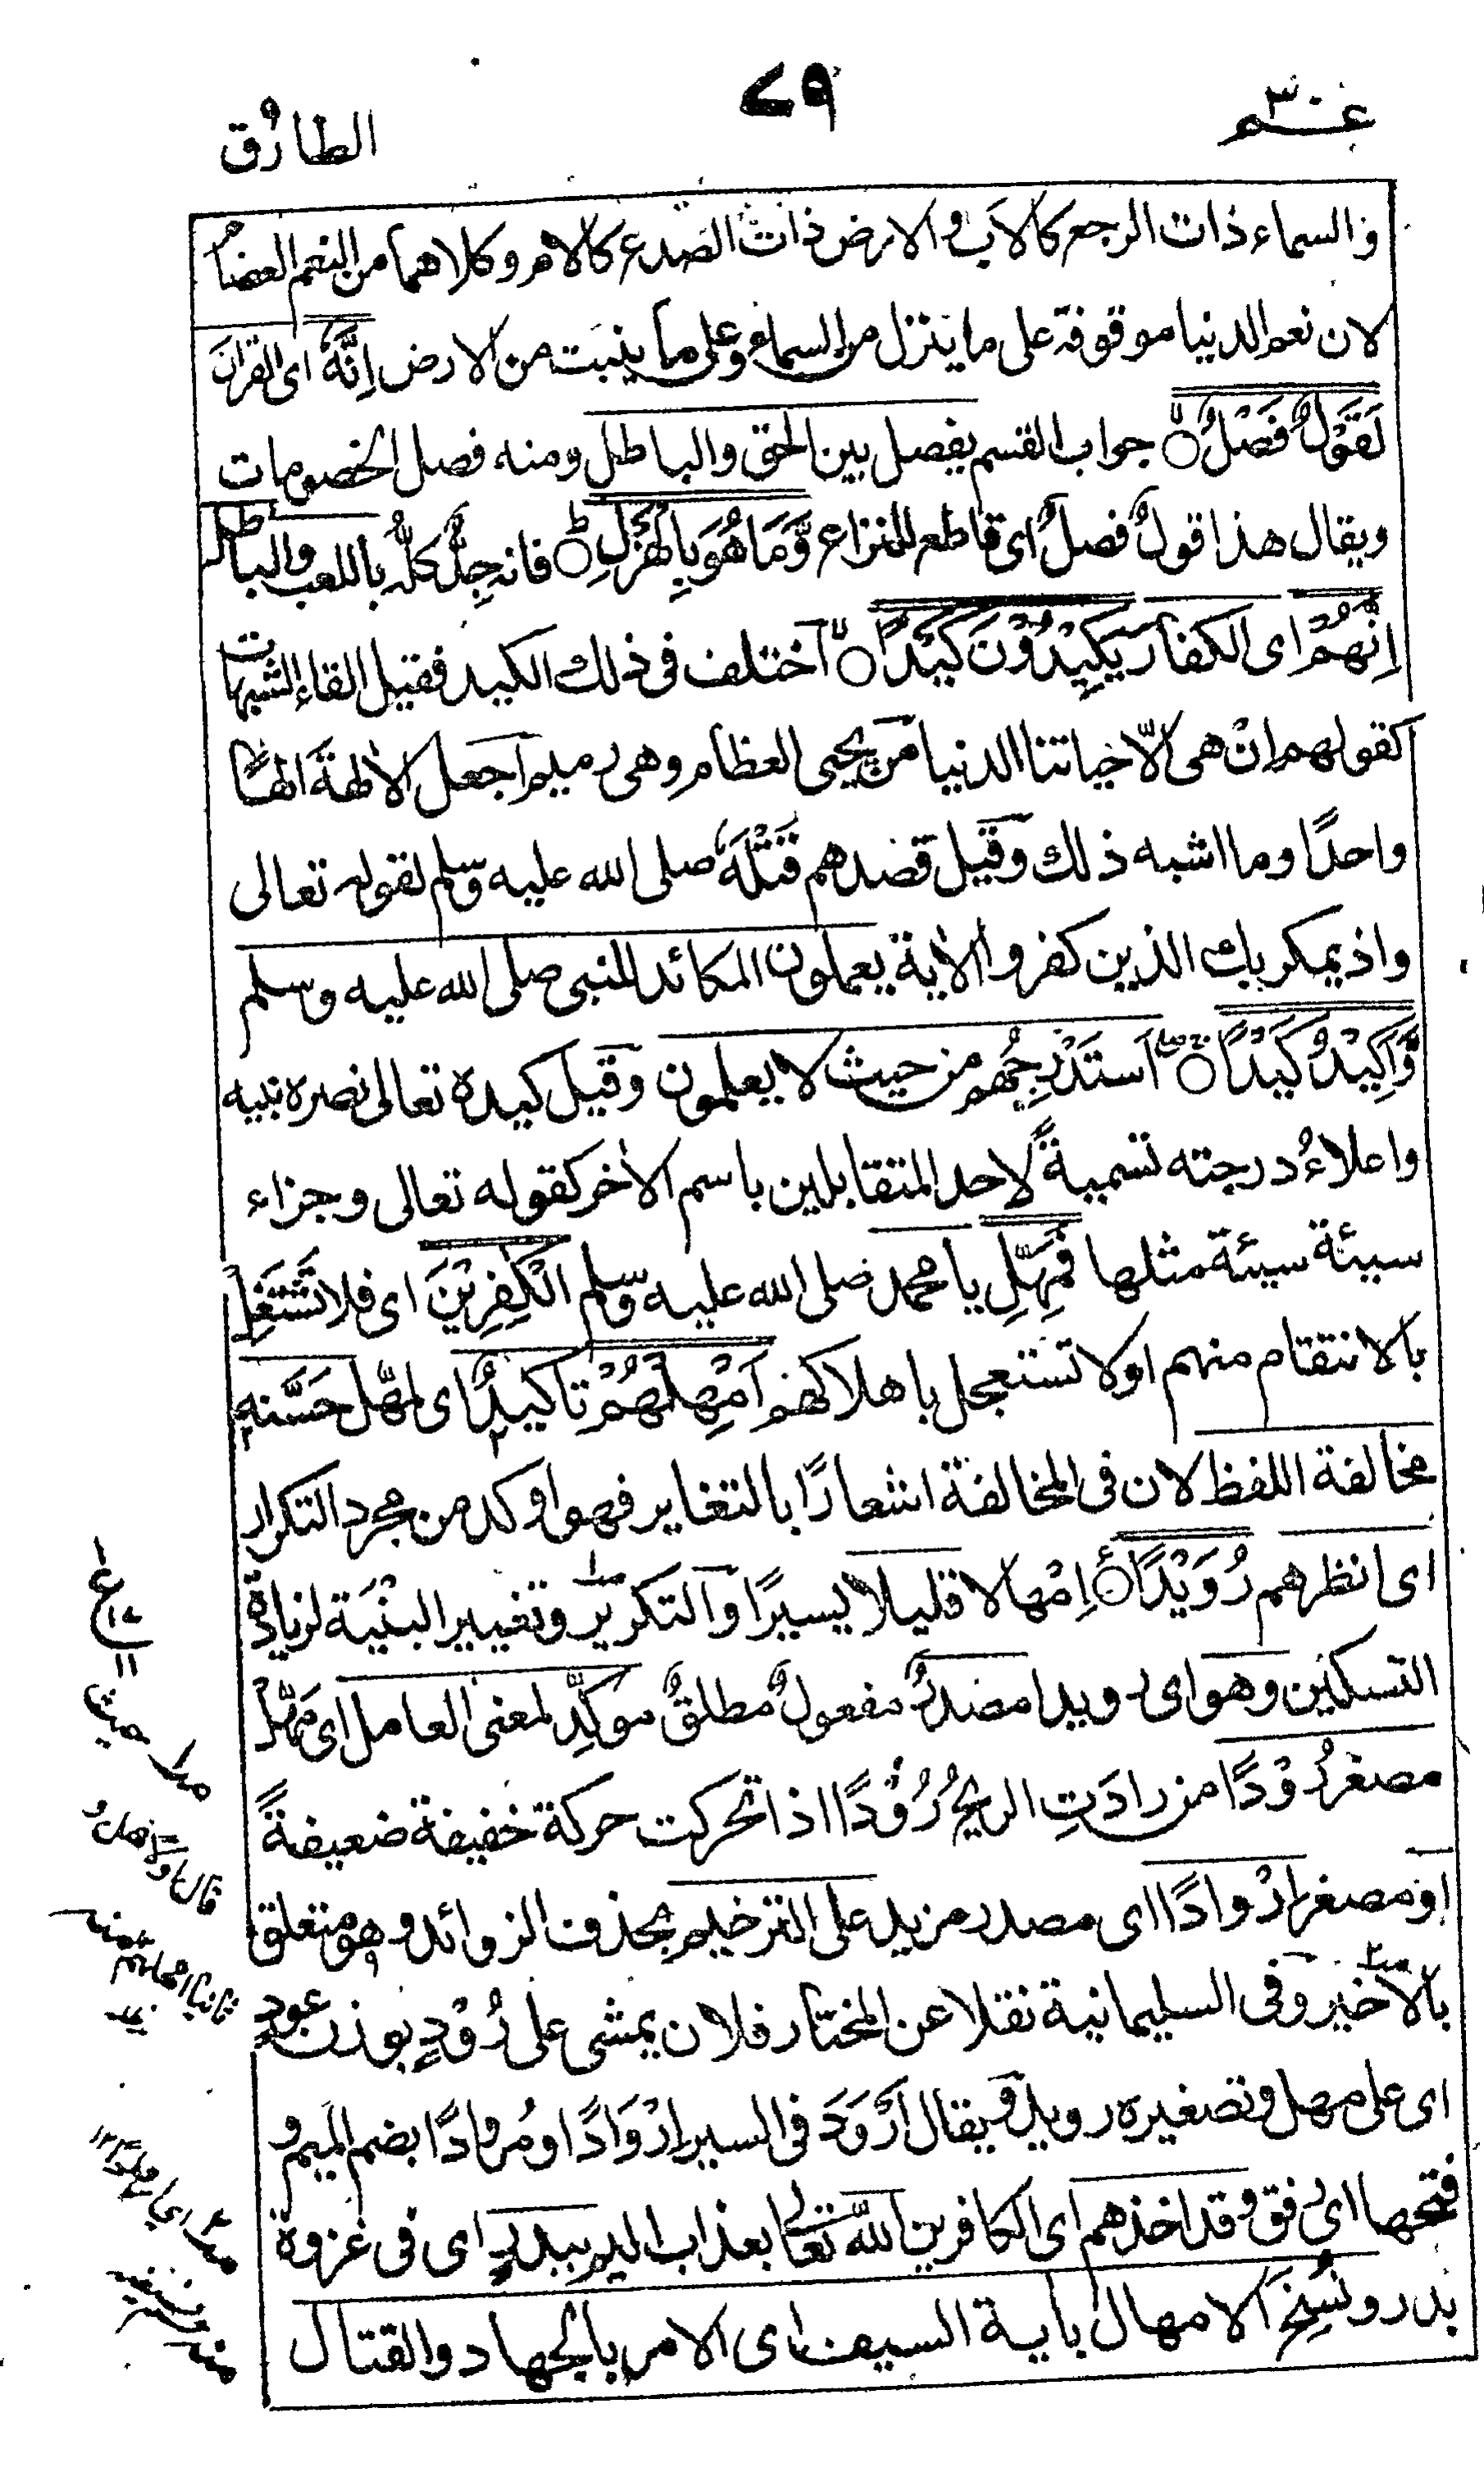 عم ٣٠
٧٩
الطارق
والسماء ذات الرجع كالاب والارض ذات الصدع كالام وكلاهما من النعم العضام
لان نعم الدنيا موقوفة على ما ينزل من السماء وعلى ما ينبت من الارض اِنَّهٗ اى القران
لَقَوْلٌ فَصْلٌ ۙ جواب القسم يفصل بين الحق والباطل ومنه فصل الخصومات
ويقال هذا قولٌ فصلٌ اى قاطع للنزاع وَّمَا هُوَ بِالْهَزْلِ ؕ فانه جِدٌّ كلُّه باللعب والباطل
اِنَّهُمْ اى الكفار يَكِيْدُوْنَ كَيْدًا ۙ اختلف فى ذلك الكيد فقيل القاء الشبهات
كقولهم ان هى الّا حياتنا الدنيا من يحيى العظام وهى رميم اجعل الاٰلهةَ الهًا
واحدًا وما اشبه ذلك وقيل قصدهم قَتْلَهٗ صلى الله عليه وسلم لقوله تعالى
واذ يمكر بك الذين كفروا الاٰية يعملون المكائد للنبى صلى الله عليه وسلم
وَّاَكِيْدُ كَيْدًا ۚۖ استَدْرِجُهم من حيث لا يعلمون وقيل كيده تعالى نصره نبيه
واعلاءُ درجته تسميةً لاحد المتقابلين باسم الاٰخر كقوله تعالى وجزاء
سيئة سيئة مثلها فَمَهِّلِ يا محمد صلى الله عليه وسلم الْكٰفِرِيْنَ اى فلا تَشْتَغِلْ
بالانتقام منهم او لا تستعجل باهلاكهم اَمْهِلْهُمْ تاكيدٌ اى لمهّل حَسَّنه
مخالفة اللفظ لان فى المخالفة اشعارًا بالتغاير فهو اوكد من مجرد التكرار
اى انظرهم رُوَيْدًا ۠ اِمْهالا قليلا يسيرًا والتكرير وتغيير البنْيَة لزيادة
التسكين وهو اى رويدا مصدرٌ مفعولٌ مطلقٌ موكِّد لمعنى العامل اى مَهِّلْ
مصغر رُوْدًا من رادَتِ الريحُ رُوْدًا اذا تحركت حركة خفيفة ضعيفةً
او مصغر اِرْوادًا اى مصدر مزيد على الترخيم بحذف الزوائد وهو متعلق
بالاخير وفى السليمانية نقلا عن المختار فلان يمشى على رُوْدٍ بوزن عودٍ
اى على مهل وتصغيره رويد ويقال اَرْوَدَ فى السير اِرْوَادًا ومُرْوَدًا بضم الميم و
فتحها اى رفق وقد اخذهم اى الكافرين اللّه تعالى بعذاب اليم ببدرٍ اى فى غزوة
بدر ونُسِخَ الامهال باٰية السيف اى الامر بالجهاد والقتال